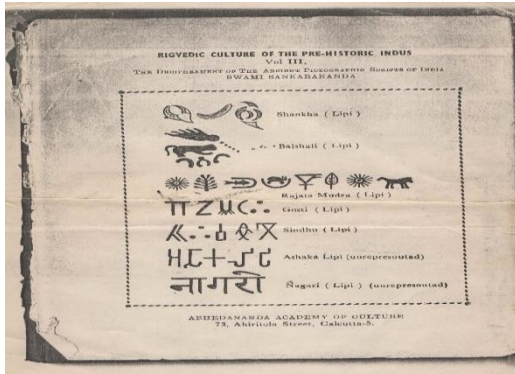 RIGVEDIC CULTURE OF THE PRE-HISTORIC INDUS
Vol III,
THE DECIPHERMENT OF THE ANCIENT PICTOGRAPHIC SCRIPTS OF INDIA
SWAMI SANKARANANDA
Shankha ( Lipi )
Baishali ( Lipi )
Rajata Mudra ( Lipi )
( Lipi )
Sindhu ( Lipi )
Ashaka Lipi (unrepresoutad)
नागरी Nagari ( Lipi ) (unrepresoutad)
ABHEDANANDA ACADEMY OF CULTURE
73, Ahiritola Street, Calcutta-5.